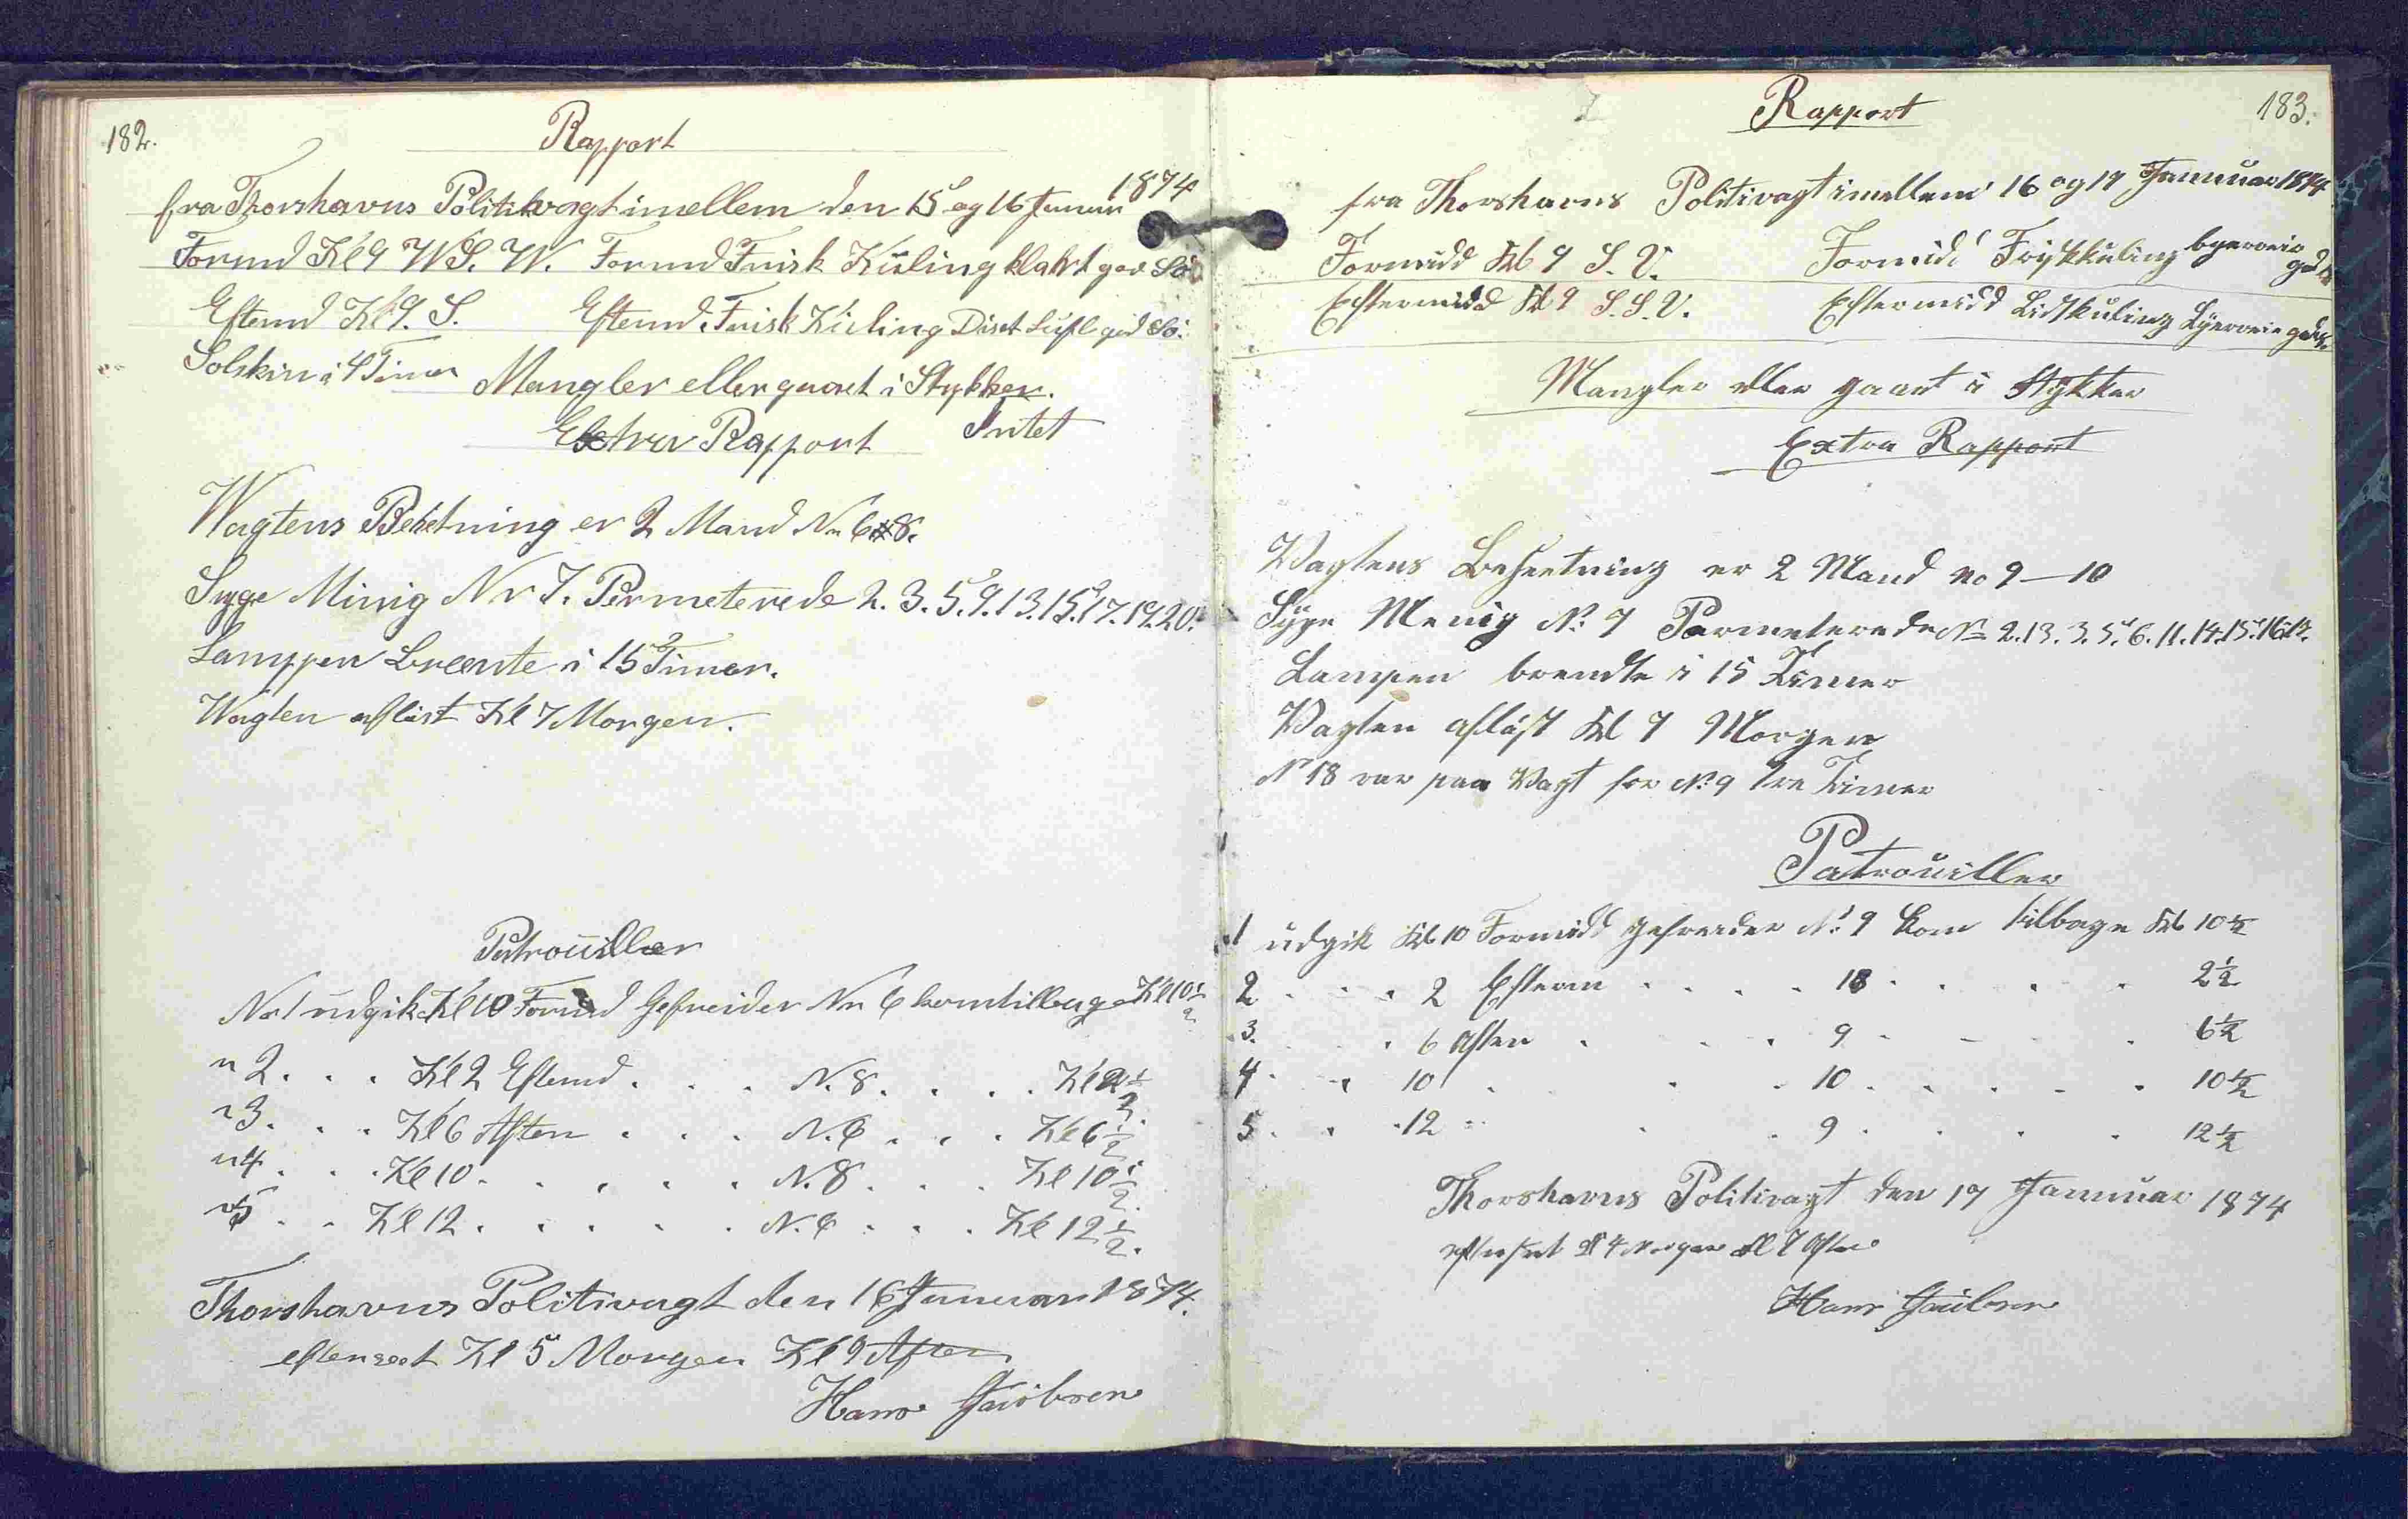 182.
Rapport
fra Thorshavns Politikvagt imellem den 15 og 16 Januar 1874
Formd Kl 9 W.S.W. Formd Frisk Küling klahrt god Sö
Eftemd Kl 9. S. Eftemd. Frisk Küling Diset Luft god Sö.
Solskin i 4 Timer
Mangler eller gaaet i Stykker.
Extra Rapport Intet
Wagtens Besetning er 2 Mand No 6 8.
Syge Minig Nr 7. Permeterede 2. 3. 5. 9. 13. 15. 17. 19. 20.
Lamppen Brente i 15 Timer.
Wagten aflöst Kl 7 Morgen.
Patrouiller
No 1 udgik Kl 10 Formd Gefreider No 6 kom tilbage Kl 10 1/2
" 2 . . . Kl 2 Eftemd . . . N. 8 . . . . Kl 2 1/2
" 3 . . . Kl 6 Aften . . . N. 6 . . . Kl 6 1/2
" 4 . . . Kl 10 . . . . . N. 8 . . . Kl 10 1/2
" 5 . . Kl 12 . . . . . N. 6 . . . Kl 12 1/2.
Thorshavns Politivagt den 16 Januar 1874.
efterseet Kl 5 Morgen Kl 9 Aften
Hans Jacobsen
183.
Rapport
fra Thorshavns Politivagt imellem 16 og 17 Januar 1874
Formidd Kl 9 S.V. Formid Friskküling
Eftermidd Kl 9 S.S.V. Eftermidd Lidtküling
Mangler eller gaaet i Stykker
Extra Rapport
Vagtens Besetning er 2 Mand no 9–10
Syge Menig No 7 Parmeterede No 2. 13. 3. 5. 6. 11. 14. 15. 16.
Lampen brendte i 15 Timer
Vagten aflöst Kl 7 Morgen
No 18 var paa Vagt for No 9 tre Timer
Patrouiller
1 udgik Kl 10 Formidd Gefreider No 9 kom tilbage Kl 10 1/2
2 . . . 2 Efterm . . . . 18 . . . . 2 1/2
3. . . 6 Aften . . . 9 . . . 6 1/2
4 . . 10 . . . 10 . . . . 10 1/2
5 . . 12 " . . 9 . . . 12 1/2
Thorshavns Politivagt den 17 Januar 1874
efterset Kl 4 Morgen Kl 7 Aften
Hans Jacobsen